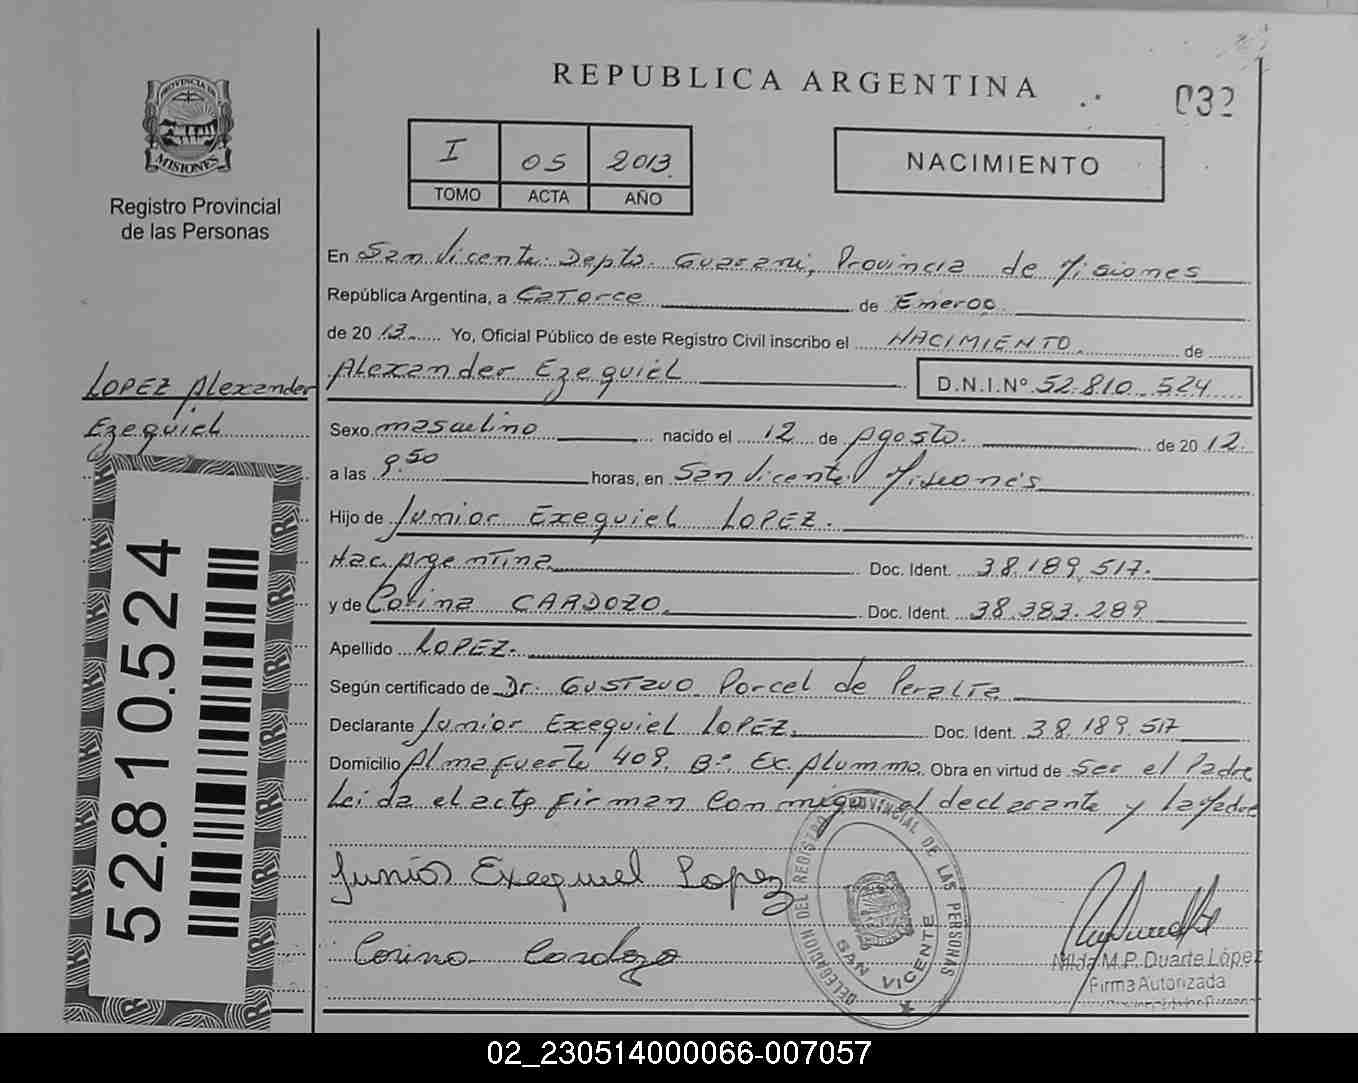 REPUBLICA ARGENTINA
032
PROVINCIA DE
MISIONES
Registro Provincial
de las Personas
I 05 2013
TOMO ACTA AÑO
NACIMIENTO
En San Vicente Depto. Guarani, Provincia de Misiones
República Argentina, a Catorce de Enero
de 2013 Yo, Oficial Público de este Registro Civil inscribo el NACIMIENTO de
Alexander Ezequiel D.N.I.Nº 52.810.524
LOPEZ Alexander
Ezequiel
Sexo masculino nacido el 12 de Agosto de 2012
a las 9.50 horas, en San Vicente Misiones
Hijo de Junior Exequiel LOPEZ.
Nac. Argentina Doc. Ident. 38.189.517.
y de Corina CARDOZO Doc. Ident. 38.383.289
Apellido LOPEZ.
Según certificado de Dr. Gustavo Porcel de Peralta
Declarante Junior Exequiel LOPEZ. Doc. Ident. 38.189.517
Domicilio Almafuerte 409. Bº. Ex. Alummo. Obra en virtud de Ser el Padre
Leida el acta firman Conmigo el declarante y la Madre
52.810.524
Junior Exequiel Lopez
Corina Cardozo
DELEGACION DEL REGISTRO PROVINCIAL DE LAS PERSONAS
SAN VICENTE
Nilda M.P. Duarte López
Firma Autorizada
02_230514000066-007057